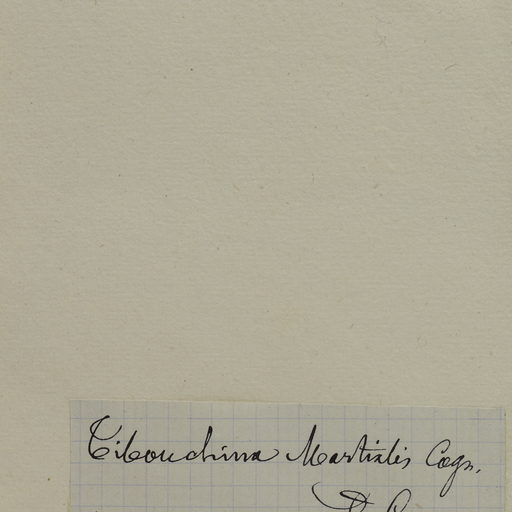 Tibouchina Martialis Cogn.